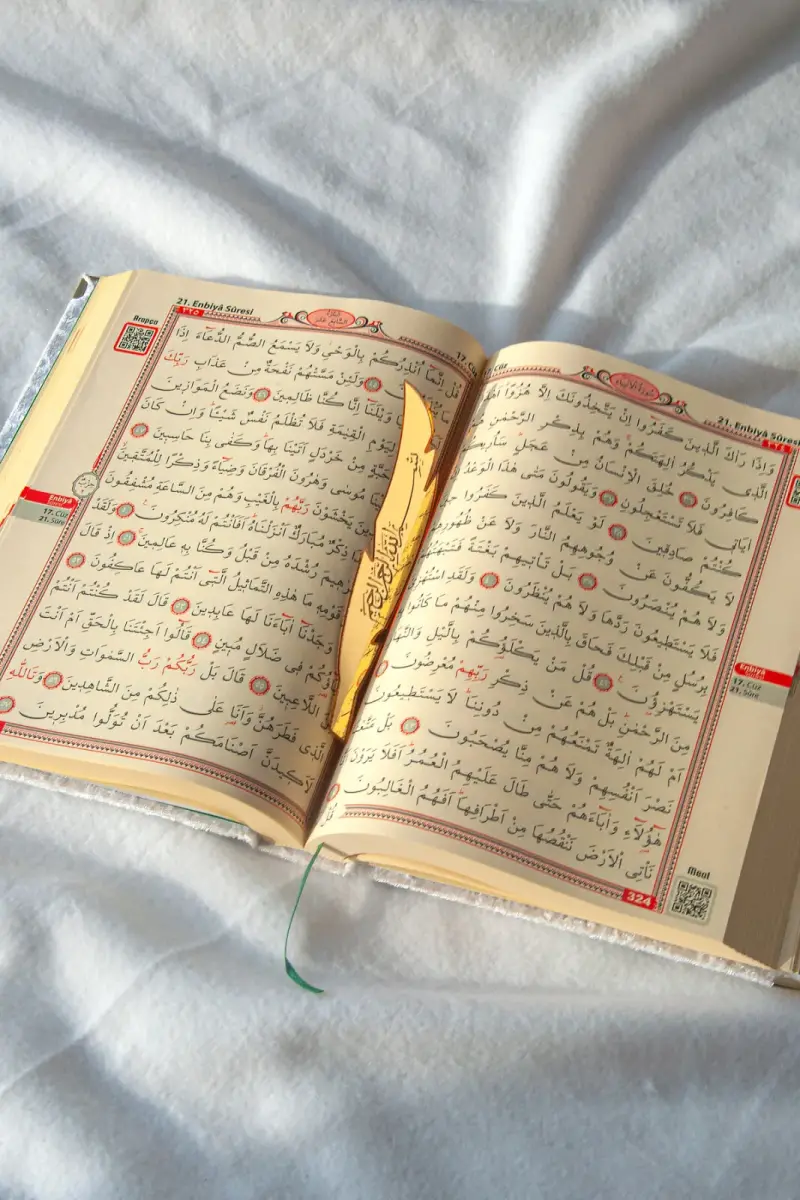 21. Enbiyâ Sûresi
سُورَةُ الْاَنْبِيَاءِ
وَاِذَا رَاٰكَ الَّذ۪ينَ كَفَرُٓوا اِنْ يَتَّخِذُونَكَ اِلَّا هُزُوًاۜ
الَّذ۪ي يَذْكُرُ اٰلِهَتَكُمْۚ وَهُمْ بِذِكْرِ الرَّحْمٰنِ
كَافِرُونَ خُلِقَ الْاِنْسَانُ مِنْ عَجَلٍۜ سَاُر۪يكُمْ
اٰيَات۪ي فَلَا تَسْتَعْجِلُونِ وَيَقُولُونَ مَتٰى هٰذَا الْوَعْدُ
كُنْتُمْ صَادِق۪ينَ لَوْ يَعْلَمُ الَّذ۪ينَ كَفَرُوا
لَا يَكُفُّونَ عَنْ وُجُوهِهِمُ النَّارَ وَلَا عَنْ ظُهُورِهِمْ
وَلَا هُمْ يُنْصَرُونَ بَلْ تَأْت۪يهِمْ بَغْتَةً فَتَبْهَتُهُمْ
فَلَا يَسْتَط۪يعُونَ رَدَّهَا وَلَا هُمْ يُنْظَرُونَ وَلَقَدِ اسْتُهْزِئَ
بِرُسُلٍ مِنْ قَبْلِكَ فَحَاقَ بِالَّذ۪ينَ سَخِرُوا مِنْهُمْ مَا كَانُوا
يَسْتَهْزِؤُ۫نَ قُلْ مَنْ يَكْلَؤُ۬كُمْ بِالَّيْلِ وَالنَّهَارِ
مِنَ الرَّحْمٰنِۜ بَلْ هُمْ عَنْ ذِكْرِ رَبِّهِمْ مُعْرِضُونَ
اَمْ لَهُمْ اٰلِهَةٌ تَمْنَعُهُمْ مِنْ دُونِنَاۜ لَا يَسْتَط۪يعُونَ
نَصْرَ اَنْفُسِهِمْ وَلَا هُمْ مِنَّا يُصْحَبُونَ بَلْ مَتَّعْنَا
هٰٓؤُ۬لَٓاءِ وَاٰبَٓاءَهُمْ حَتّٰى طَالَ عَلَيْهِمُ الْعُمُرُۜ اَفَلَا يَرَوْنَ
نَأْتِي الْاَرْضَ نَنْقُصُهَا مِنْ اَطْرَافِهَاۜ اَفَهُمُ الْغَالِبُونَ
قُلْ
Enbiyâ
17. Cüz
21. Sûre
324
Meal
21. Enbiyâ Sûresi
٣٢٥
Arapça
قُلْ اِنَّمَٓا اُنْذِرُكُمْ بِالْوَحْيِۘ وَلَا يَسْمَعُ الصُّمُّ الدُّعَٓاءَ اِذَا
وَلَئِنْ مَسَّتْهُمْ نَفْحَةٌ مِنْ عَذَابِ رَبِّكَ
يَا وَيْلَنَٓا اِنَّا كُنَّا ظَالِم۪ينَ وَنَضَعُ الْمَوَاز۪ينَ
لِيَوْمِ الْقِيٰمَةِ فَلَا تُظْلَمُ نَفْسٌ شَيْـًٔاۜ وَاِنْ كَانَ
حَبَّةٍ مِنْ خَرْدَلٍ اَتَيْنَا بِهَاۜ وَكَفٰى بِنَا حَاسِب۪ينَ
مُوسٰى وَهٰرُونَ الْفُرْقَانَ وَضِيَٓاءً وَذِكْرًا لِلْمُتَّق۪ينَ
يَخْشَوْنَ رَبَّهُمْ بِالْغَيْبِ وَهُمْ مِنَ السَّاعَةِ مُشْفِقُونَ
ذِكْرٌ مُبَارَكٌ اَنْزَلْنَاهُۜ اَفَاَنْتُمْ لَهُ مُنْكِرُونَ وَلَقَدْ
رُشْدَهُ مِنْ قَبْلُ وَكُنَّا بِه۪ عَالِم۪ينَ اِذْ قَالَ
وَقَوْمِه۪ مَا هٰذِهِ التَّمَاث۪يلُ الَّت۪ٓي اَنْتُمْ لَهَا عَاكِفُونَ
وَجَدْنَٓا اٰبَٓاءَنَا لَهَا عَابِد۪ينَ قَالَ لَقَدْ كُنْتُمْ اَنْتُمْ
ف۪ي ضَلَالٍ مُب۪ينٍ قَالُٓوا اَجِئْتَنَا بِالْحَقِّ اَمْ اَنْتَ
اللَّاعِب۪ينَ قَالَ بَلْ رَبُّكُمْ رَبُّ السَّمٰوَاتِ وَالْاَرْضِ
الَّذ۪ي فَطَرَهُنَّۘ وَاَنَا۬ عَلٰى ذٰلِكُمْ مِنَ الشَّاهِد۪ينَ وَتَاللّٰهِ
لَاَك۪يدَنَّ اَصْنَامَكُمْ بَعْدَ اَنْ تُوَلُّوا مُدْبِر۪ينَ
Enbiyâ
17. Cüz
21. Sûre